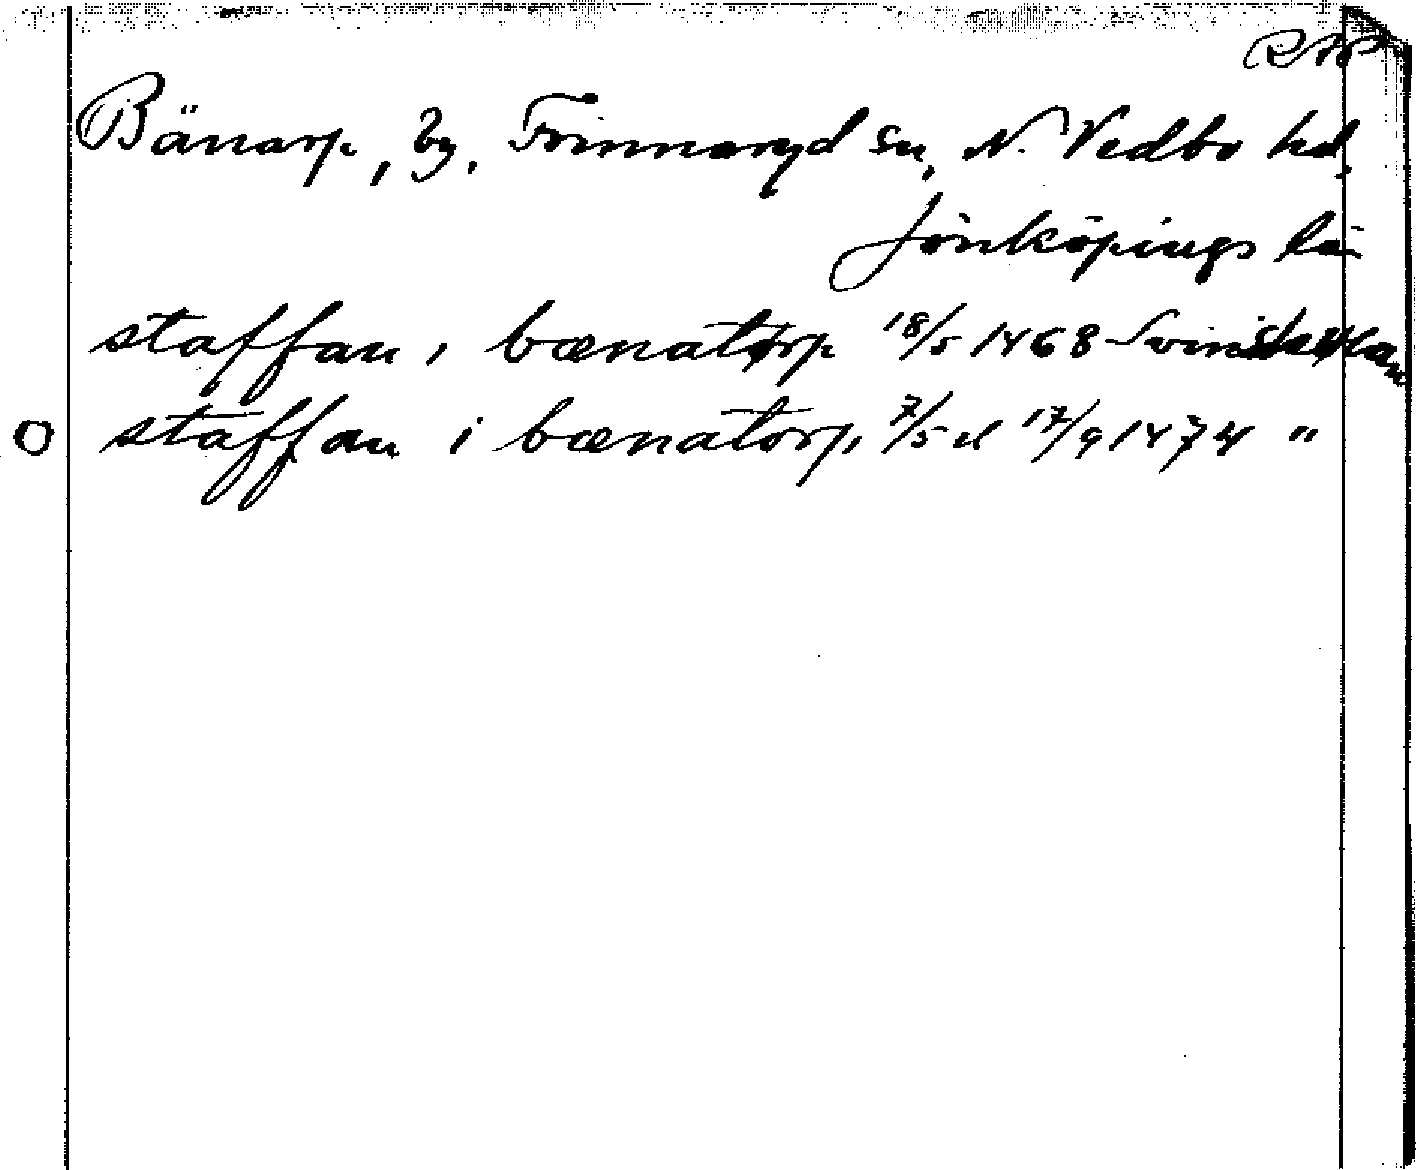 RAP
Bänarp, by, Frinnaryd sn, N. Vedbo hd,
Jönköpings län
staffan i bænatorp 18/5 1468
staffan i bænatorp, 7/5 el 17/9 1474 "